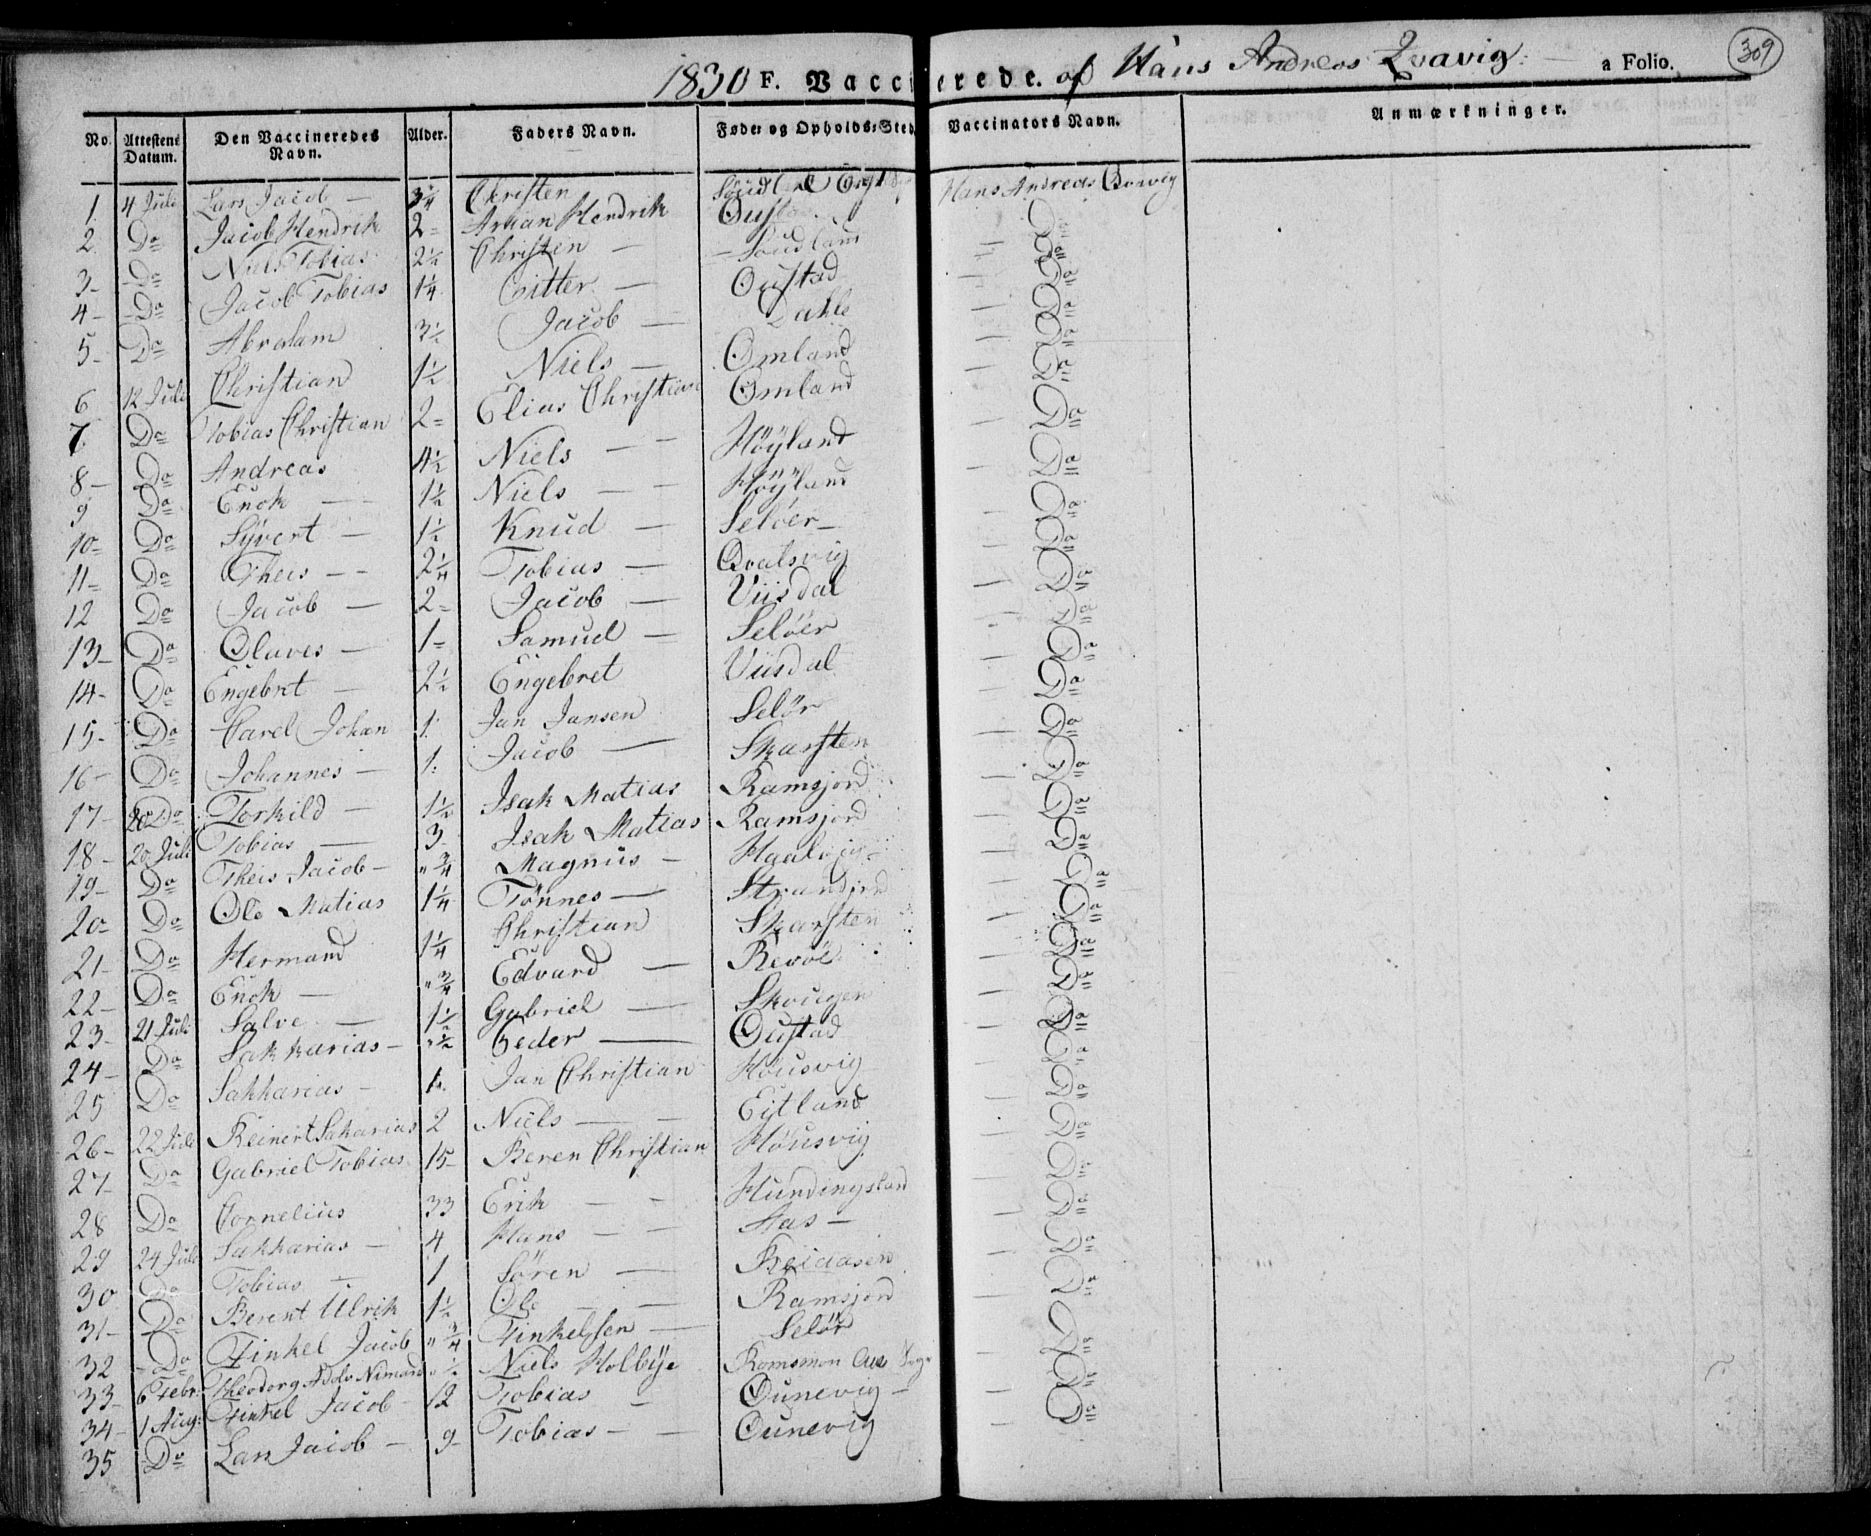 1830 F. Vaccinerede. af Hans Andreas a Folio. 309
No. Attestens Datum. Den Vaccineredes Navn. Alder. Faders Navn. Føde- og Opholds-Sted Vaccinators Navn. Anmærkninger.
1. 4 Juli Lars Jacob — 3/4 Christen Hans Andreas Qvavig
2. Do Jacob Hendrik 2 = Arian Hendrik Do
3 - Do Niels Tobias 2 1/2 Christen — — Do
4 - Do Jacob Tobias 1 1/4 Pitter — Oustad — Do
5 - Do Abraham 3 1/2 Jacob — Dahle — Do
6 12 Juli Christian 1 1/2 Niels — Omland — Do
7. Do Tobias Christian 2 = Elias Christian Omland — Do
8 - Do Andreas 4 1/2 Niels — Höyland — Do
9 Do Enok — 1 1/2 Niels — — Höyland — Do
10 = Do Syvert — 1 1/2 Knud — Selöer — — Do
11 = Do Theis — 2 1/4 Tobias — Qvalsvig — Do
12 Do Jacob — 2 = Jacob — Viisdal — Do
13 - Do Olaves — 1 = Samuel — Selöer — Do
14 - Do Engebret — 2 1/2 Engebret Viisdal — Do
15 - Do Carel Johan 1. Jan Jansen Selör — Do
16 - Do Johannes — 1. Jacob — Skarsten — Do
17 - Do Torkild — 1 1/2 Isak Matias Ramsjord — Do
18 - 20 Juli Tobias — 3 - Isak Matias Ramsjord — Do
19 - Do Theis Jacob — " 3/4 Magnus — — Do
20 - Do Ole Matias 1 1/4 Tönnes — Strandjord — Do
21 - Do Hermand 1 1/4 Christian Skarsten — Do
22 - Do Enok — " 3/4 Edvard — — Do
23 - 21 Juli Salve — 1 1/2 Gabriel — Skougen — Do
24 - Do Sakkarias — " 1/2 Peder — Oustad — Do
25 Do Sakkarias — 1. Jan Christian Housvig — Do
26 - 22 Juli Reinert Sakarias 2 Niels — Eitland — Do
27 - Do Gabriel Tobias 15 - Beren Christian Höusvig — Do
28 Do Cornelius 33 Erik — Hundingsland — Do
29 24 Juli Sakkarias — 4 Hans — Aas — — Do
30 Do Tobias — 1 Sören — — Do
31 - Do Berent Ulrik 1 1/2 Ole — Ramsjord — Do
32 - Do Finkel Jacob " 3/4 Finkelsen — Selör — Do
33 - 6 Febr: Theodorg Adolv " 1/2 Niels Holbye — Do
34 - 1 Aug: Finkel Jacob — 12 Tobias — Ounevig — — Do
35 Do Lars Jacob — 9 - Tobias — — Ounevig —